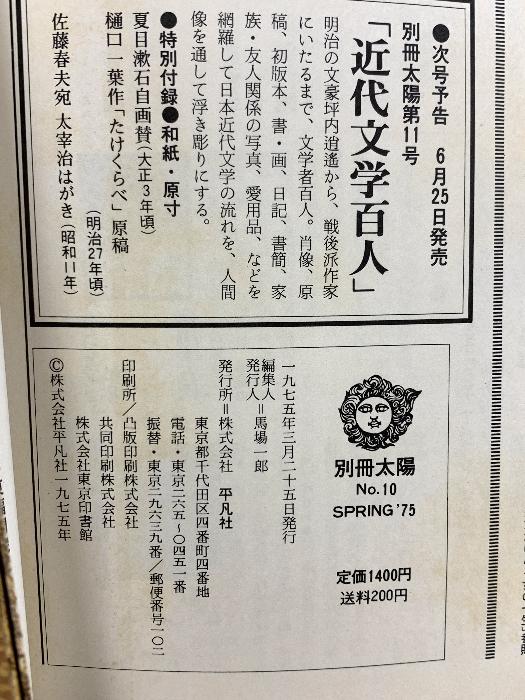 ●次号予告　6月25日発売
別冊太陽第11号
「近代文学百人」
明治の文豪坪内逍遙から、戦後派作家
にいたるまで、文学者百人。肖像、原
稿、初版本、書・画、日記、書簡、家
族・友人関係の写真、愛用品、などを
網羅して日本近代文学の流れを、人間
像を通して浮き彫りにする。
●特別付録●和紙・原寸
夏目漱石自画賛(大正3年頃)
樋口一葉作「たけくらべ」原稿
(明治27年頃)
佐藤春夫宛 太宰治はがき(昭和11年)
別冊太陽
No.10
SPRING '75
定価1400円
送料200円
一九七五年三月二十五日発行
編集人
発行人＝馬場一郎
発行所＝株式会社　平凡社
東京都千代田区四番町四番地
電話・東京二六五〜〇四五一番
振替・東京二九六三九番/郵便番号一〇二
印刷所/凸版印刷株式会社
共同印刷株式会社
株式会社東京印書館
©株式会社平凡社一九七五年